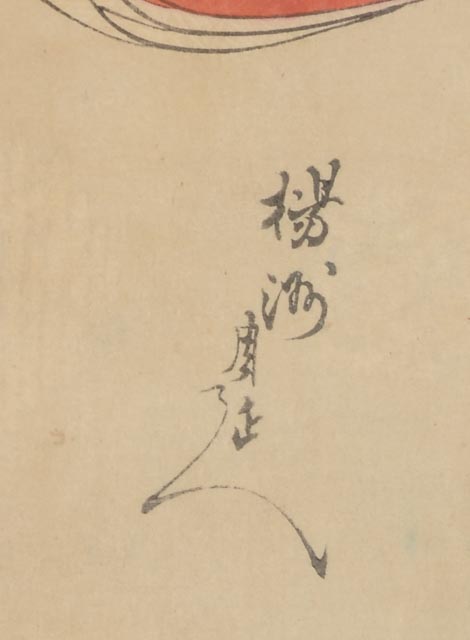 楊洲周延